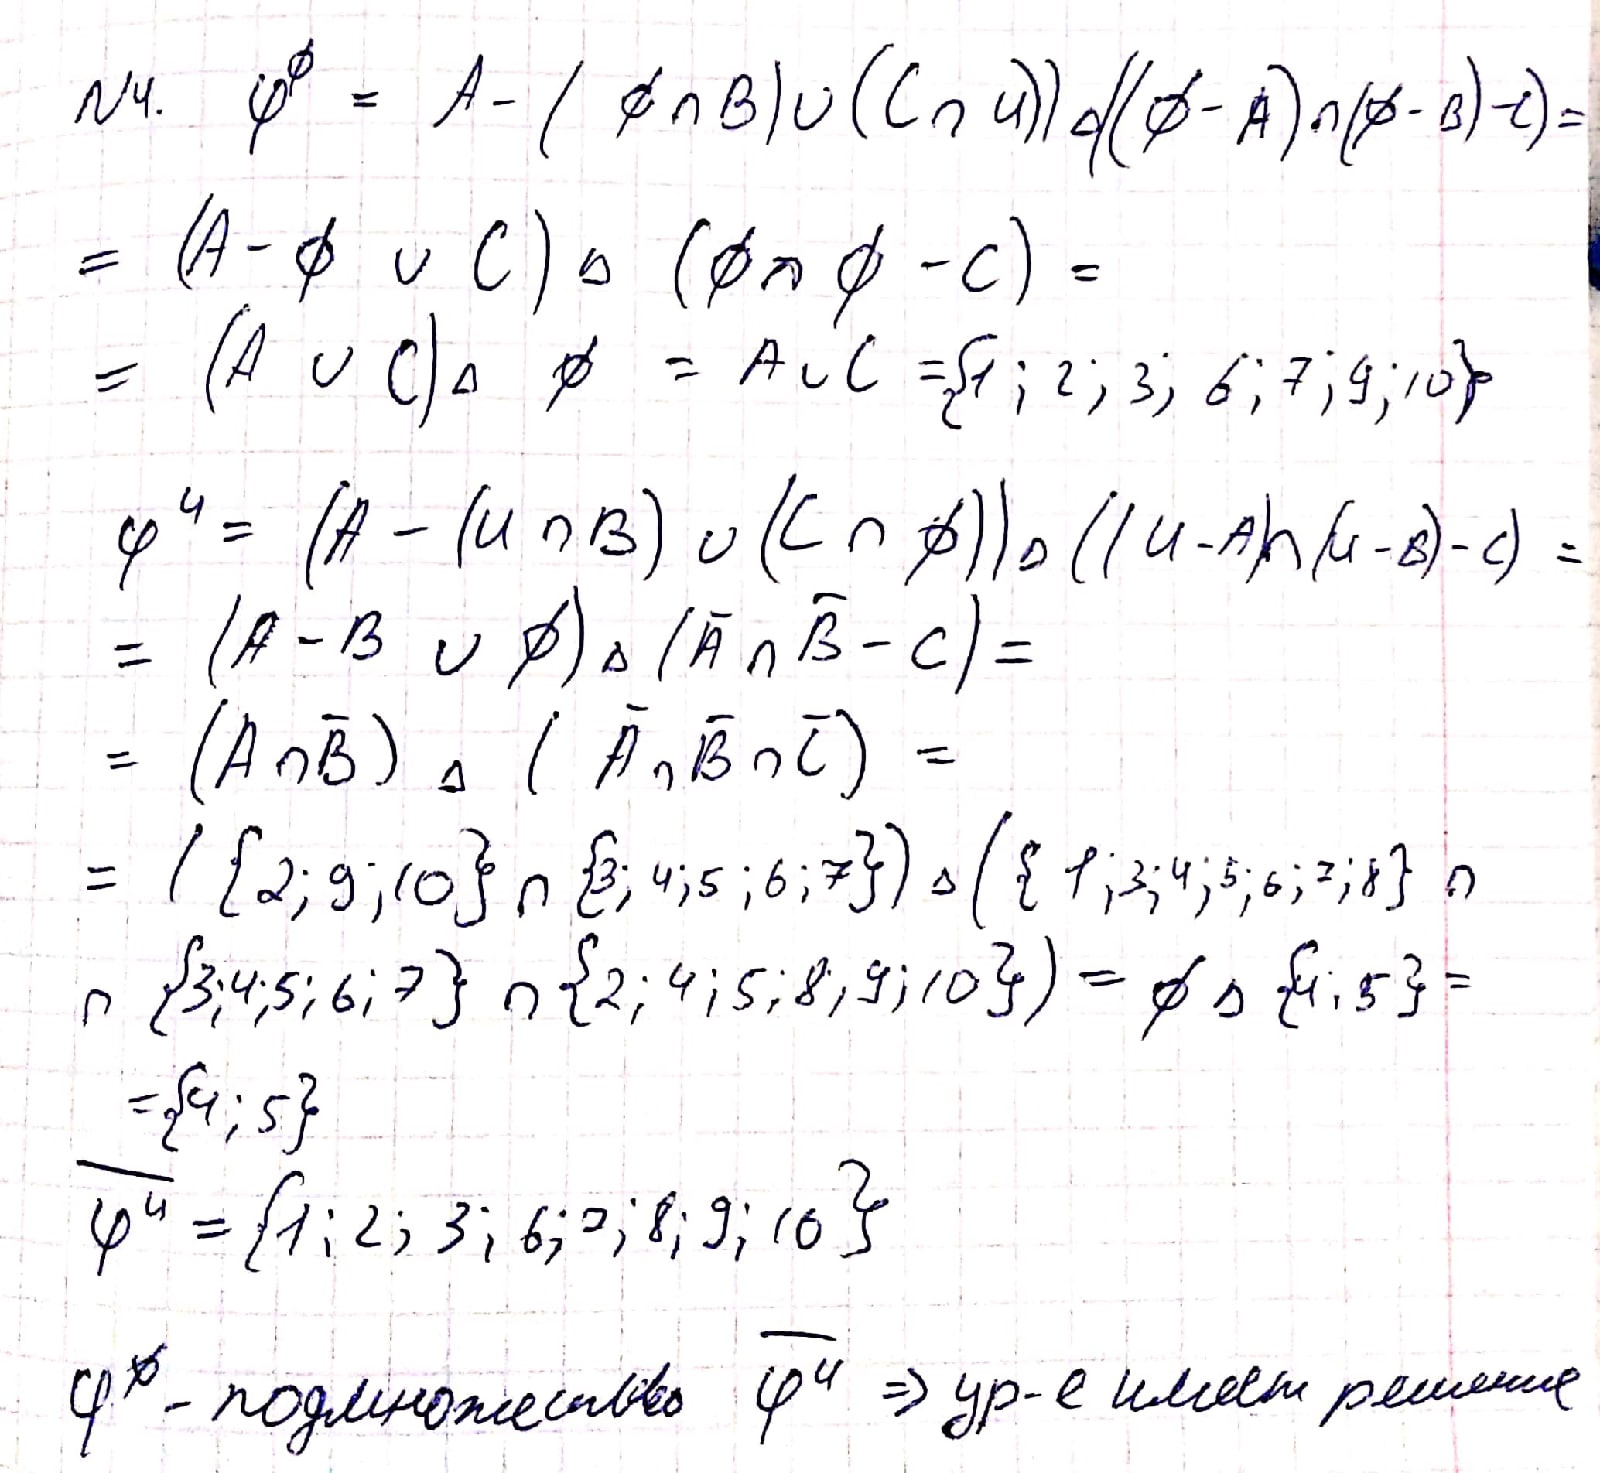 N4. φ^∅ = A - (∅∩B)∪(C∩U))△((∅-A)∩(∅-B)-C)=
= (A-∅ ∪ C)△(∅∩∅-C)=
= (A∪C)△∅ = A∪C={1;2;3;6;7;9;10}
φ^U = (A-(U∩B)∪(C∩∅))△((U-A)∩(U-B)-C)=
= (A-B ∪ ∅)△(Ā∩B̄-C)=
= (A∩B̄)△(Ā∩B̄∩C̄)=
= ({2;9;10}∩{3;4;5;6;7})△({1;3;4;5;6;7;8}∩
∩{3;4;5;6;7}∩{2;4;5;8;9;10})=∅△{4;5}=
={4;5}
\overline{φ^U} = {1;2;3;6;7;8;9;10}
φ^∅ - подмножество \overline{φ^U} ⇒ ур-е имеет решение